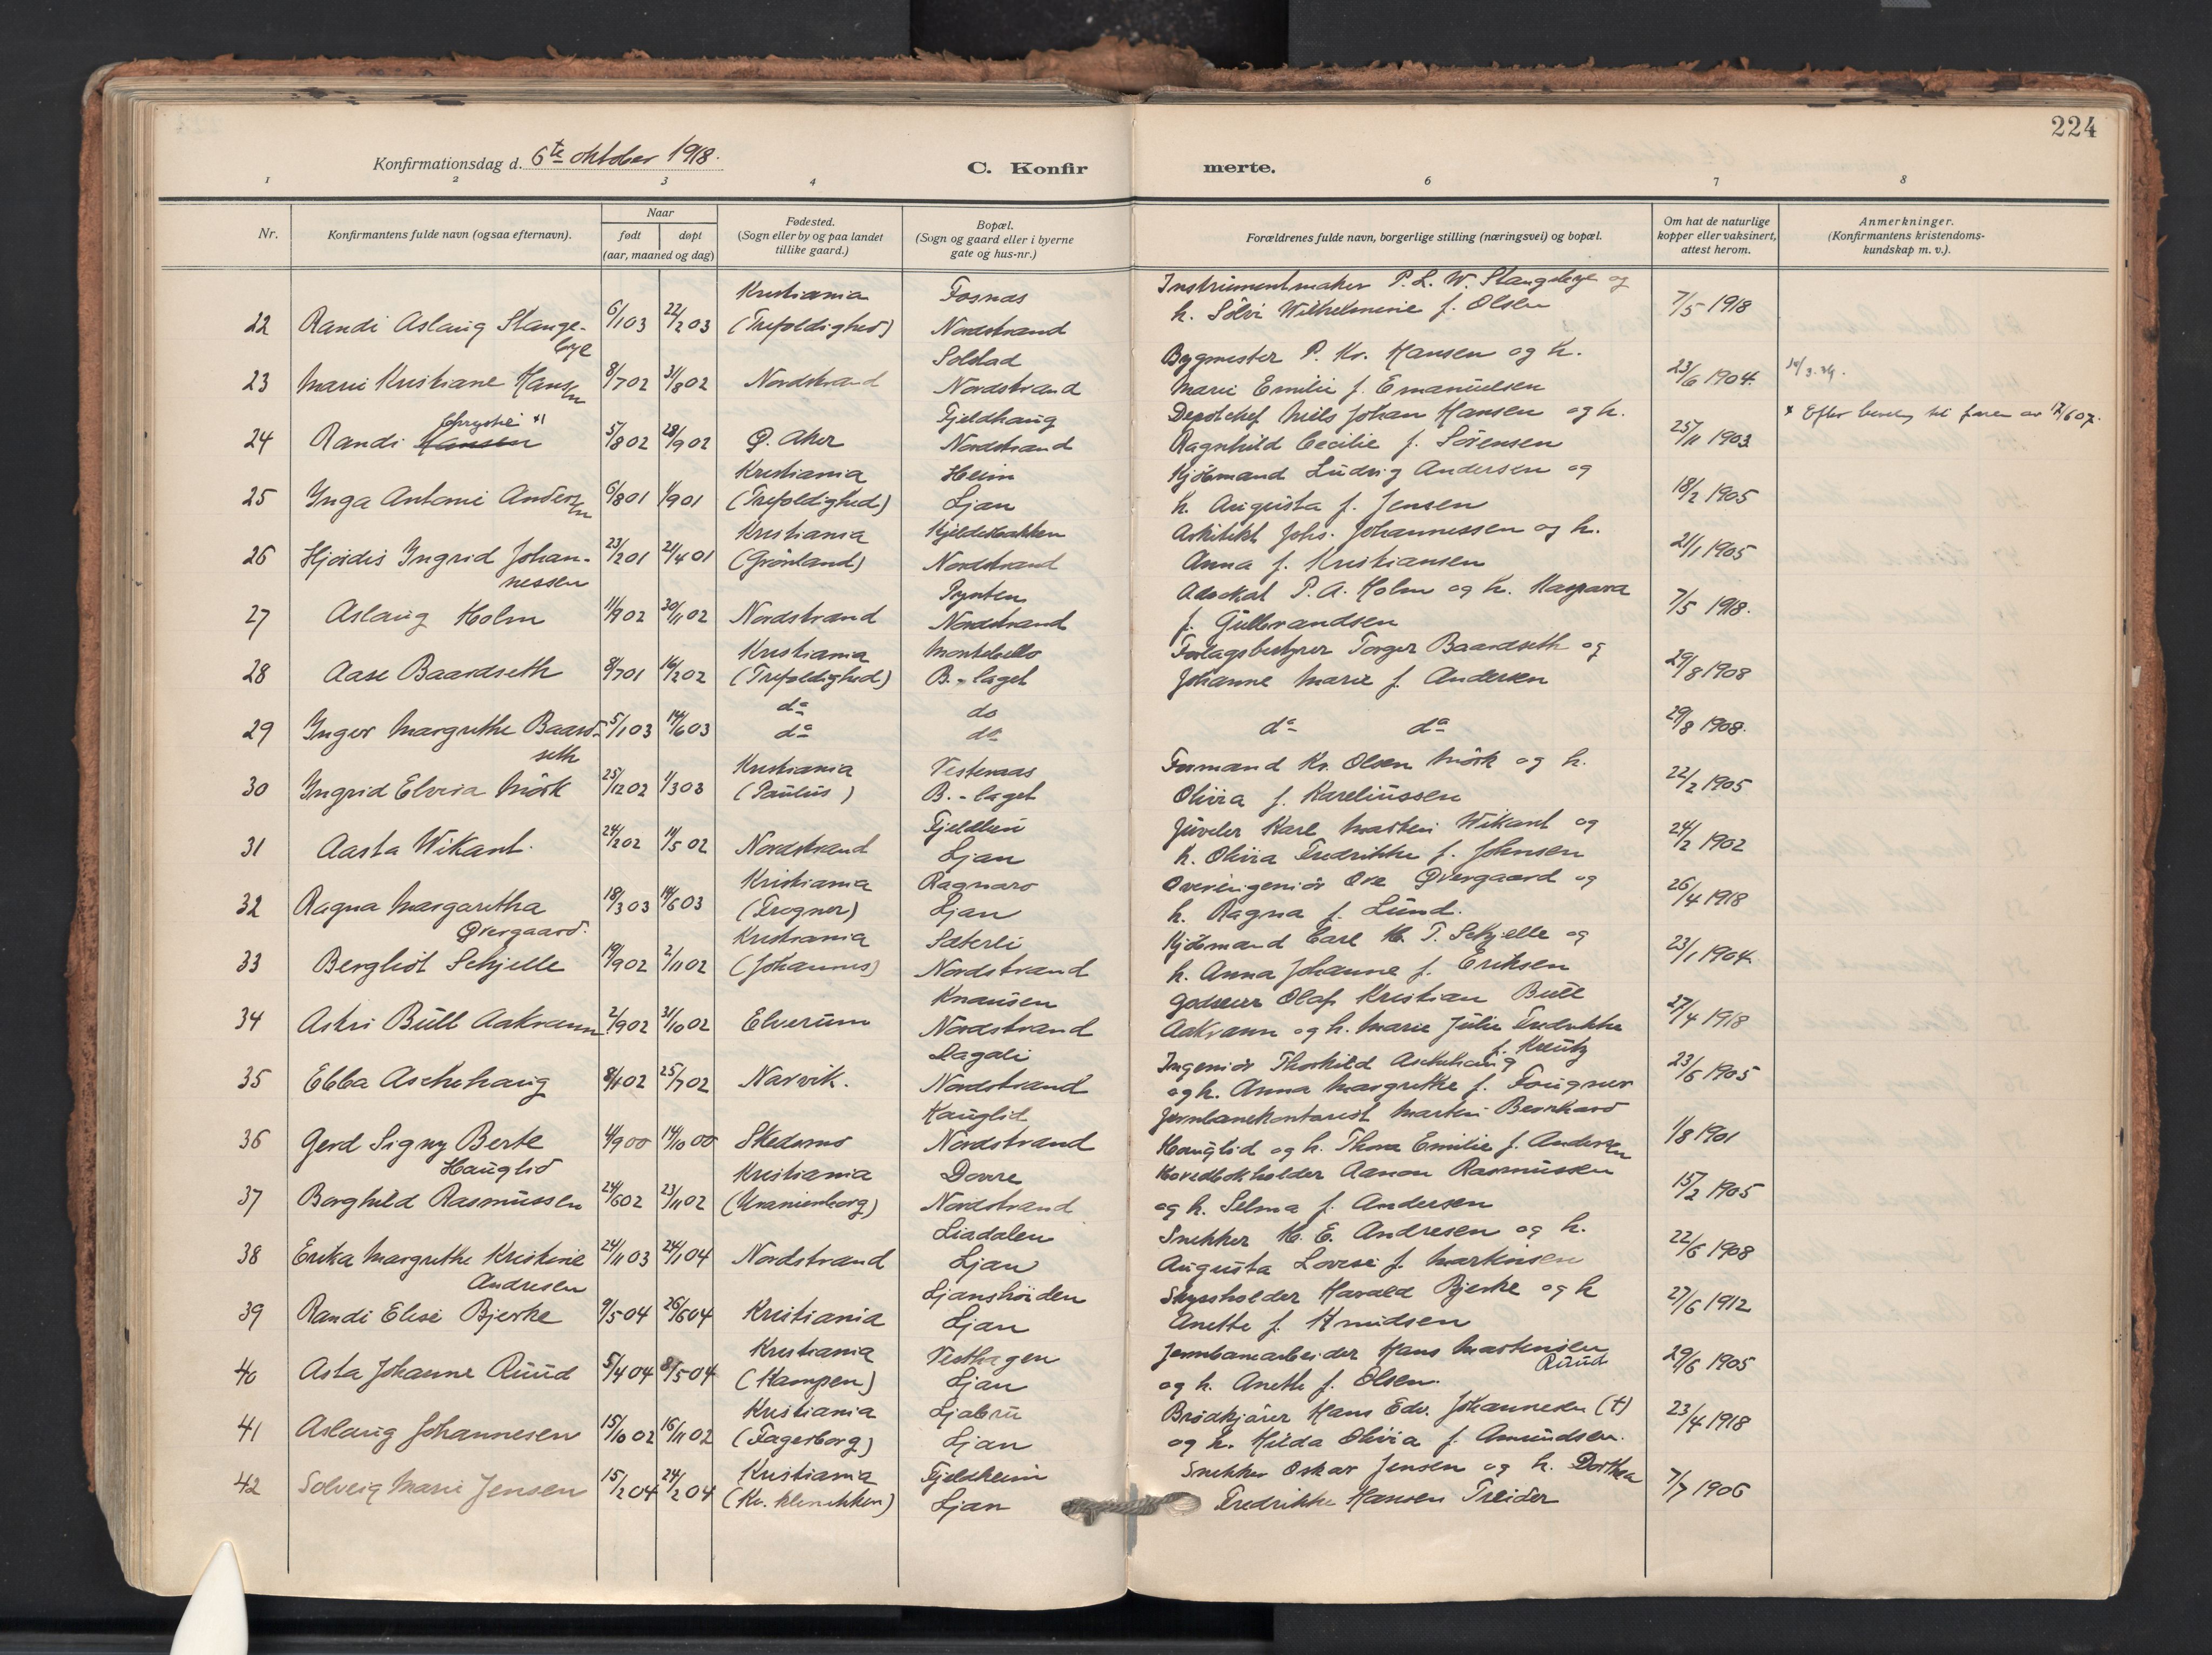 224
Konfirmationsdag d. 6te oktober 1918.
C. Konfir merte.
1 2 3 4 6 7 8
Nr.
Konfirmantens fulde navn (ogsaa efternavn).
Naar
født døpt
(aar, maaned og dag)
Fødested.
(Sogn eller by og paa landet
tillike gaard.)
Bopæl.
(Sogn og gaard eller i byerne
gate og hus-nr.)
Forældrenes fulde navn, borgerlige stilling (næringsvei) og bopæl.
Om hat de naturlige
kopper eller vaksinert,
attest herom.
Anmerkninger.
(Konfirmantens kristendoms-
kundskap m. v.).
Kristiania Fosnas Instrumentmaker P. L. W. Stangebye og
22 Randi Aslaug Stange- 6/1 03 22/2 03 (Trefoldighed) Nordstrand h. Sölvi Wilhelmine f. Olsen 7/5 1918
bye
Solstad Bygmester P. Kr. Hansen og h.
23 Marie Kristiane Hansen 8/7 02 31/8 02 Nordstrand Nordstrand Marie Emilie f. Emanuelsen 23/6 1904.
Chrystie x) Fjeldhaug Depotchef Niels Johan Hansen og h. x Efter til faren av 12/6 07.
24 Randi Hansen 5/8 02 28/9 02 Ø. Aker Nordstrand Ragnhild Cecilie f. Sörensen 25/11 1903
Kristiania Heim Kjöbmand Ludvig Andersen og
25 Inga Antonie Andersen 6/8 01 1/9 01 (Trefoldighed) Ljan h. Augusta f. Jensen 18/2 1905
Kristiania Kjeldesbakken Arkitekt Johs. Johannessen og h.
26 Hjördis Ingrid Johan- 23/2 01 21/4 01 (Grönland) Nordstrand Anna f. Kristiansen 21/1 1905
nessen
Pynten Advokat P. A. Holm og h. Kaspara
27 Aslaug Holm 11/9 02 30/11 02 Nordstrand Nordstrand f. Gulbrandsen 7/5 1918.
Kristiania Montebello Forlagsbestyrer Torger Baardseth og
28 Aase Baardseth 8/7 01 16/2 02 (Trefoldighed) B.-laget Johanne Marie f. Andersen 29/8 1908
do do
29 Inger Margrethe Baard- 5/1 03 14/6 03 do do do do 29/8 1908.
seth
Kristiania Vesteraas Formand Kr. Olsen Mörk og h.
30 Ingrid Elvira Mörk 25/12 02 1/3 03 (Paulus) B.-laget Olivia f. Kareliussen 22/2 1905
Fjeldheim Juveler Karl Martin Wikant og
31 Aasta Wikant. 24/2 02 11/5 02 Nordstrand Ljan h. Olivia Fredrikke f. Johnsen 24/2 1902
Kristiania Ragnaro Overingeniör Ove Øvergaard og
32 Ragna Margaretha 18/3 03 14/6 03 (Frogner) Ljan h. Ragna f. Lund. 26/4 1918
Øvergaard.
Kristiania Säterli Kjöbmand Carl H. T. Schjelle og
33 Bergliot Schjelle 19/9 02 2/11 02 (Johannes) Nordstrand h. Anna Johanne f. Eriksen 23/1 1904.
Knausen Godseier Olaf Kristian Bull
34 Astri Bull Aakrann 2/9 02 31/10 02 Elverum Nordstrand Aakrann og h. Marie Julie Fredrikke 27/4 1918
f. Kreutz
Dagali Ingeniör Thorkild Aschehaug
35 Ebba Aschehaug 8/1 02 25/7 02 Narvik. Nordstrand og h. Anna Margrethe f. Fougner 23/6 1905
Hauglid Jernbanekontorist Martin Bernhard
36 Gerd Signy Berte 4/9 00 14/10 00 Skedsmo Nordstrand Hauglid og h. Thora Emilie f. Andersen 1/8 1901
Hauglid
Kristiania Dovre Hovedbokholder Aanon Rasmussen
37 Borghild Rasmussen 24/6 02 23/11 02 (Uranienborg) Nordstrand og h. Selma f. Andersen 15/2 1905
Liadalen Snekker K. E. Andresen og h.
38 Erika Margrethe Kristine 24/11 03 24/1 04 Nordstrand Ljan Augusta Lovise f. Martinsen 22/6 1908
Andresen
Ljanshöiden Skyssholder Harald Bjerke og h
39 Randi Elise Bjerke 9/5 04 26/6 04 Kristiania Ljan Anette f. Knudsen 27/6 1912
Kristiania Vesthagen Jernbanearbeider Hans Martinsen
Ruud
40 Asta Johanne Ruud 5/4 04 8/5 04 (Kampen) Ljan og h. Anette f. Olsen. 29/6 1905
Kristiania Ljabru Brödkjörer Hans Edv. Johannesen (†)
41 Aslaug Johannesen 15/10 02 16/11 02 (Fagerborg) Ljan og h. Hilda Olivia f. Amundsen. 23/4 1918
Kristiania Fjeldheim Snekker Oskar Jensen og h. Dorthea
42 Solveig Marie Jensen 15/2 04 24/2 04 (Kv. klinikken) Ljan Fredrikke Hansen Treider 7/7 1906